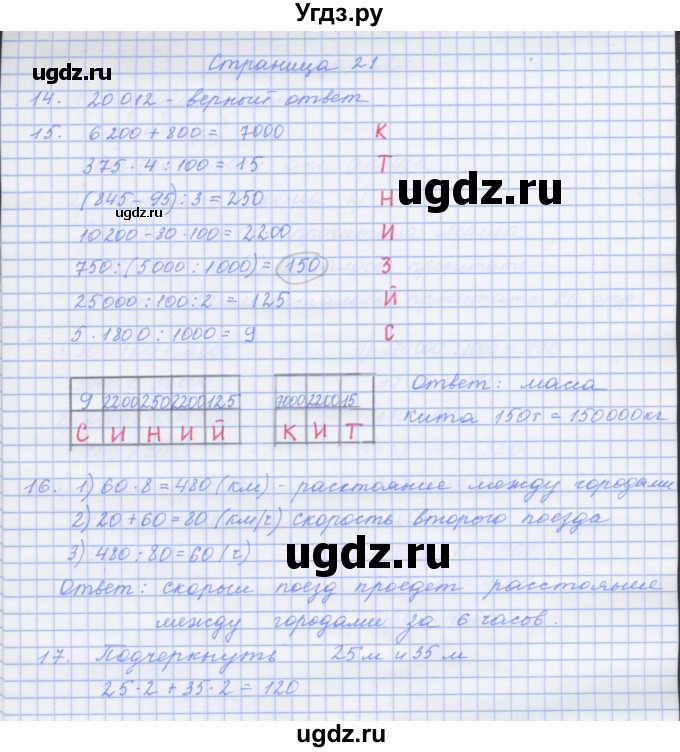 Угдз.ру
Страница 21
14. 20 012 - верный ответ
15. 6 200 + 800 = 7000 К
375 · 4 : 100 = 15 Т
(845 - 95) : 3 = 250 Н
10 200 - 80 · 100 = 2200 И
750 : (5 000 : 1000) = 150 З
25 000 : 100 : 2 = 125 Й
5 · 1800 : 1000 = 9 С
9 2200 250 2200 125
С И Н И Й
7000 2200 15
К И Т
Ответ: масса
кита 150т = 150000кг
16. 1) 60 · 8 = 480 (км) - расстояние между городами
2) 20 + 60 = 80 (км/ч) скорость второго поезда
3) 480 : 80 = 60 (ч)
Ответ: скорый поезд проедет расстояние
между городами за 6 часов.
17. Подчеркнуть 25 м и 35 м
25 · 2 + 35 · 2 = 120
ugdz.ru
ugdz.ru
ugdz.ru
ugdz.ru
ugdz.ru
ugdz.ru
ugdz.ru
ugdz.ru
ugdz.ru
Угдз.ру